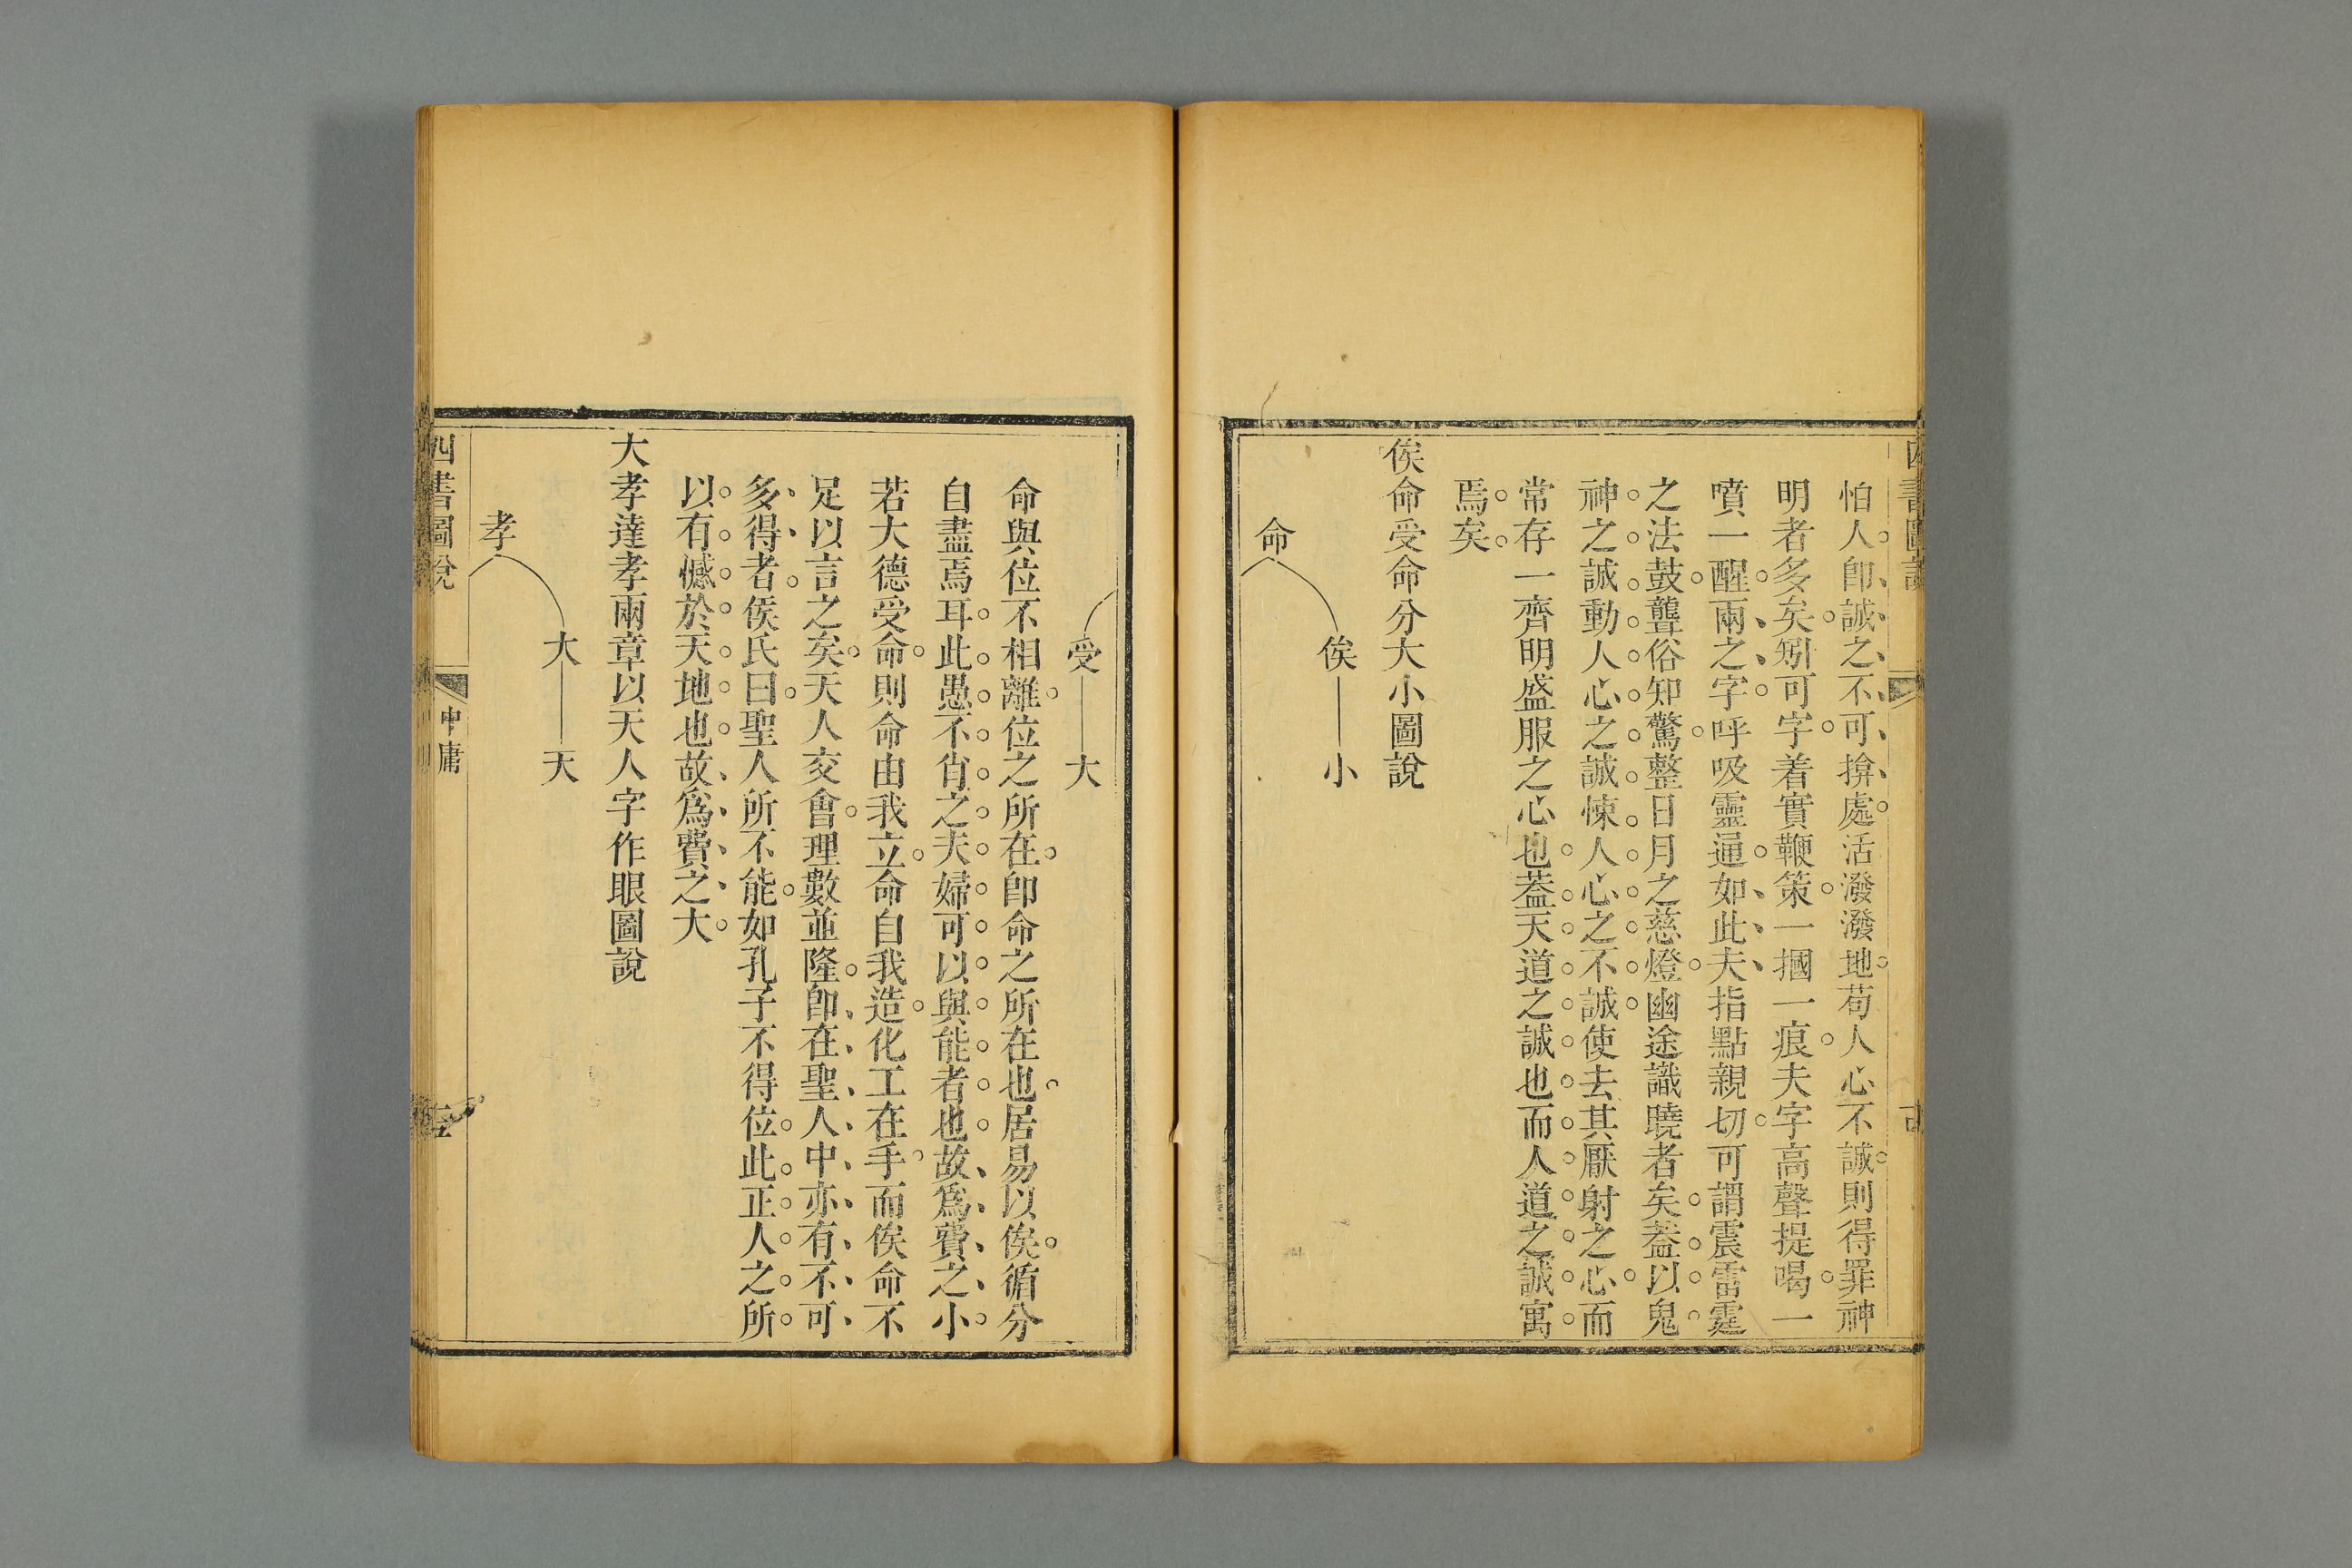 怕人卽誠之不可揜處活潑潑地苟人心不誠則得罪神
明者多矣矧可字着實鞭策一摑一痕夫字高聲提喝一
噴一醒兩之字呼吸靈通如此夫指點親切可謂震雷霆
之法鼓聾俗知驚整日月之慈燈幽途識曉者矣葢以鬼
神之誠動人心之誠悚人心之不誠使去其厭射之心而
常存一齊明盛服之心也葢天道之誠也而人道之誠寓
焉矣
俟命受命分大小圖說
俟 小
命
受 大
命與位不相離位之所在卽命之所在也居易以俟循分
自盡焉耳此愚不肖之夫婦可以與能者也故爲費之小
若大德受命則命由我立命自我造化工在手而俟命不
足以言之矣天人交會理數並隆卽在聖人中亦有不可
多得者侯氏曰聖人所不能如孔子不得位此正人之所
以有憾於天地也故爲費之大
大孝達孝兩章以天人字作眼圖說
大 天
孝
四書圖說 中庸